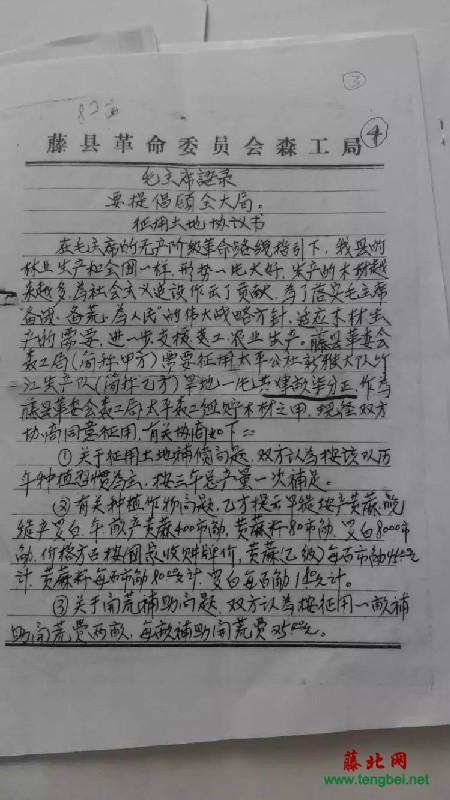 ③
④
藤县革命委员会森工局
毛主席语录
要提倡顾全大局。
征用土地协议书
在毛主席的无产阶级革命路线指引下，我县的
林业生产和全国一样，形势一片大好，生产的木材越
来越多，为社会主义建设作出了贡献，为了落实毛主席
备战、备荒、为人民"的伟大战略方针，适应木材生
产的需要，进一步支援农工农业生产。藤县革委会
森工局（简称甲方）需要征用太平公社新雅大队
江生产队（简称乙方）旱地一片共 作为
藤县革委会森工局太平森工 贮木材之用，现经双方
协商同意征用，有关协商如下：
①关于征用土地补偿问题，双方认为按该队历
年种植习惯为主，按三年总产量一次补足。
②有关种植作物问题，乙方提出早 按产黄麻
产 年，亩产黄麻400市斤，黄麻籽80市斤， 8000市
斤，价格方面按国家收购牌价，黄麻（乙级）每百市斤
计，黄麻籽每百市斤 计， 每百斤 计。
③关于开荒补助问题，双方认为按征用一亩补
助开荒费两亩，每亩补助开荒费25元。
藤北网
www.tengbei.net